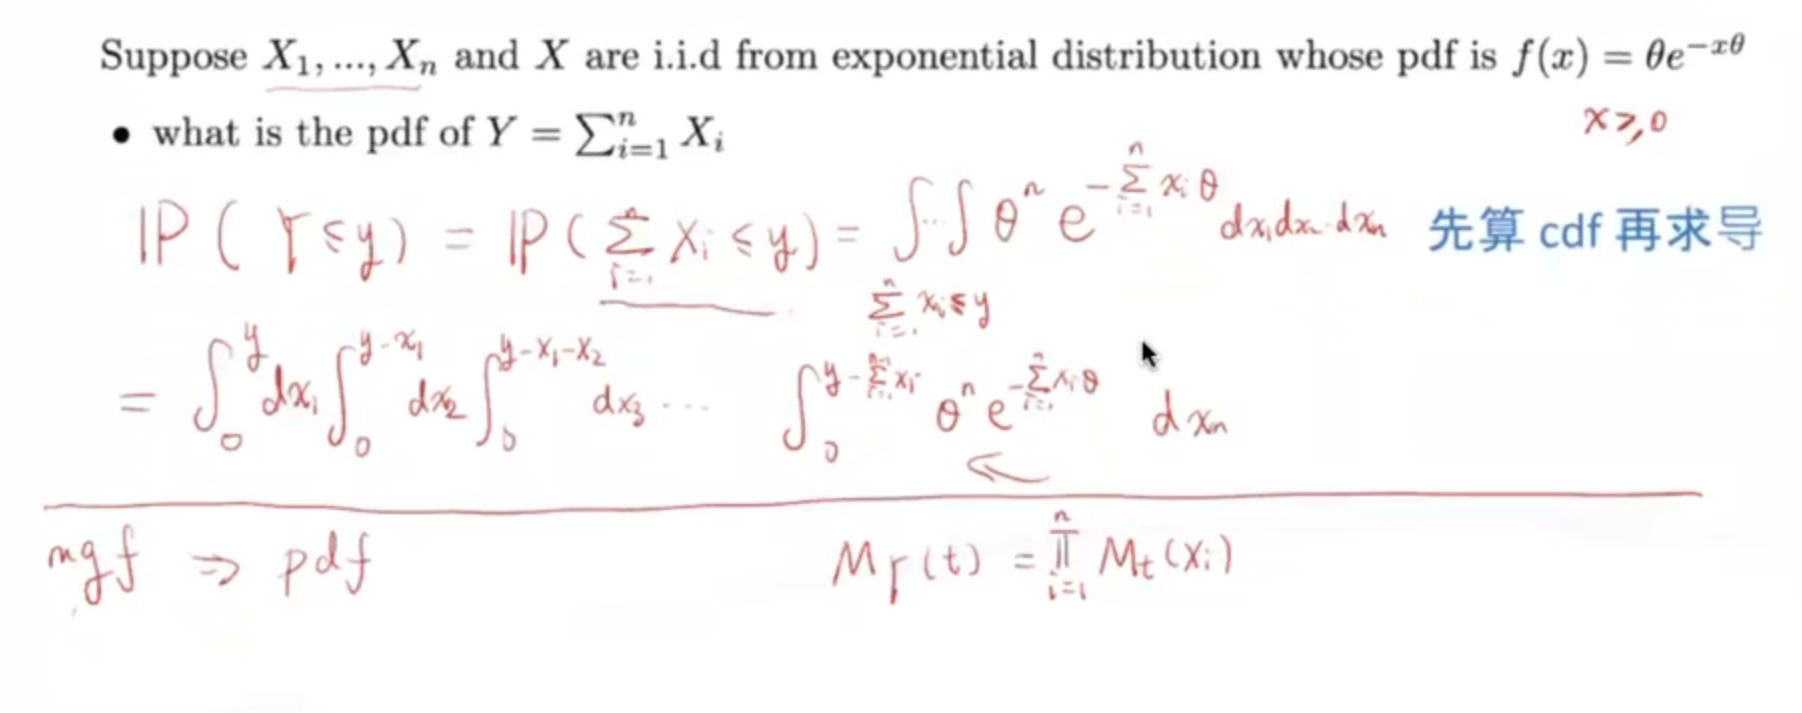 Suppose X₁, ..., Xₙ and X are i.i.d from exponential distribution whose pdf is f(x) = θe^{−xθ}
x ≥ 0
• what is the pdf of Y = ∑_{i=1}^{n} Xᵢ
ℙ( Y ≤ y ) = ℙ( ∑_{i=1}^{n} Xᵢ ≤ y ) = ∫···∫_{∑_{i=1}^{n} xᵢ ≤ y} θⁿ e^{−∑_{i=1}^{n} xᵢ θ} dx₁dx₂···dxₙ 先算 cdf 再求导
= ∫₀^{y} dx₁ ∫₀^{y−x₁} dx₂ ∫₀^{y−x₁−x₂} dx₃ ··· ∫₀^{y−∑_{i=1}^{n−1} xᵢ} θⁿ e^{−∑_{i=1}^{n} xᵢ θ} dxₙ
mgf ⇒ pdf M_Y(t) = ∏_{i=1}^{n} M_t(Xᵢ)